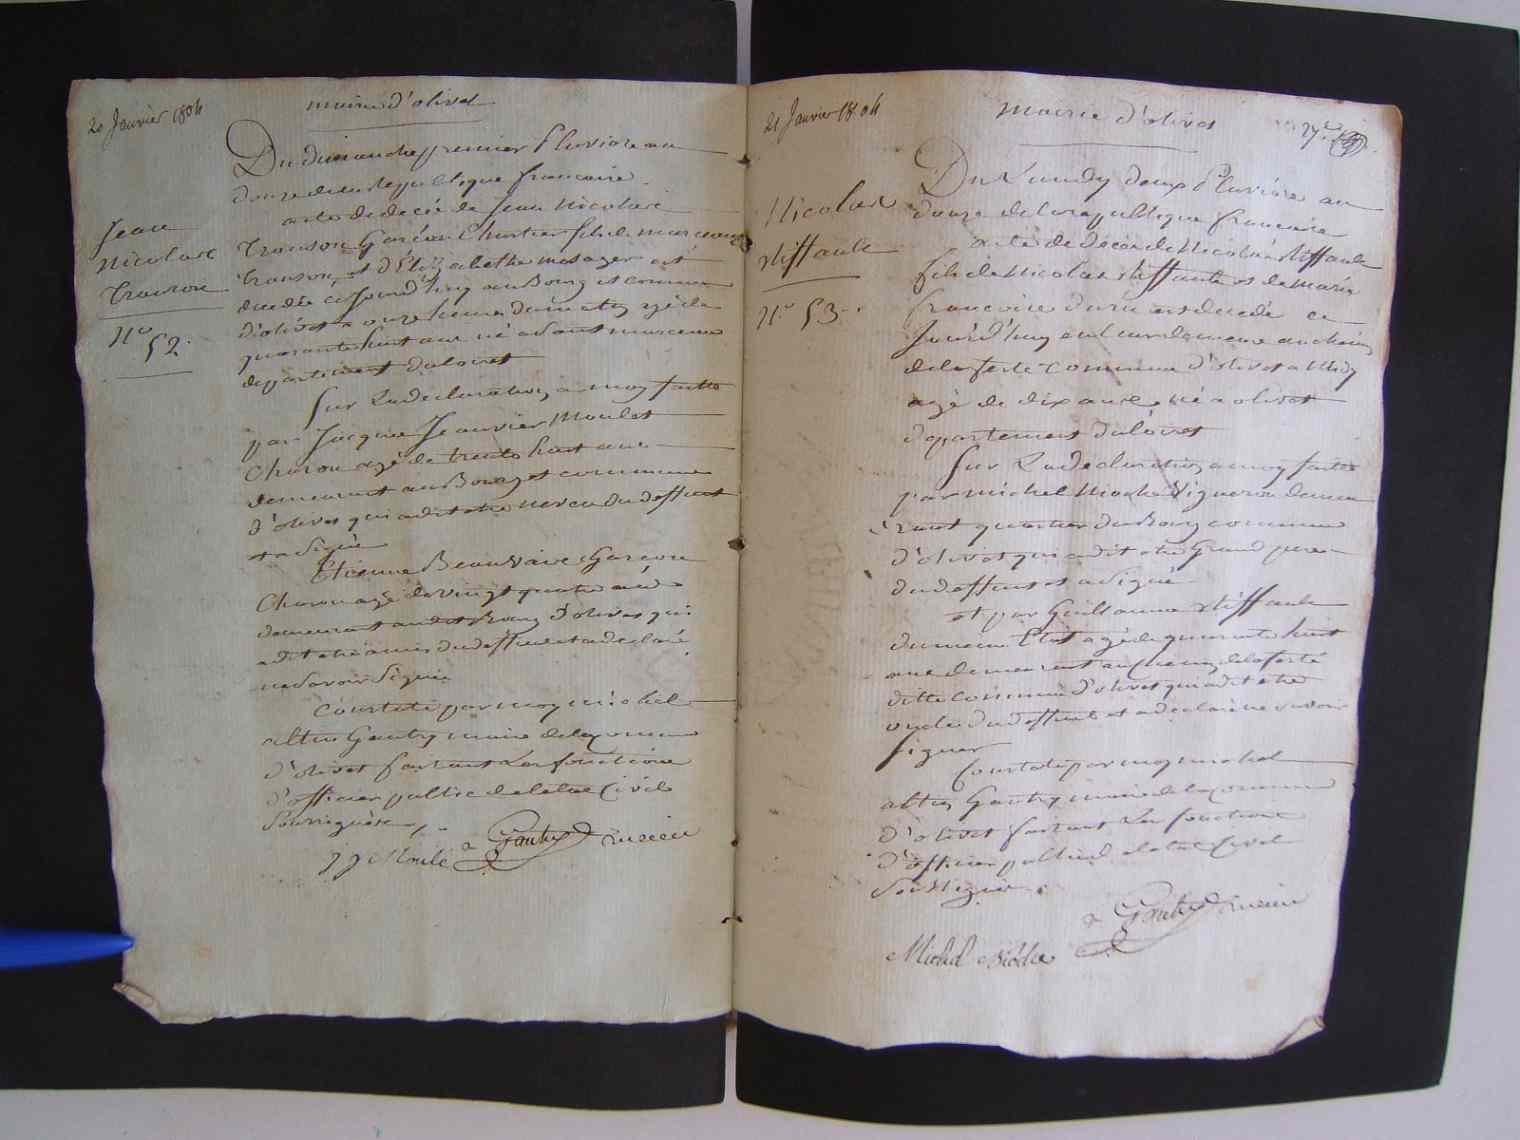 20 Janvier 1804
mairie d'olivet
Du dimanche premier Pluviose an
douze de la Republique francaise
acte de decée de Jean Nicolas
Jean
Nicolas
Transon
N° 52.
Transon Garçon Charron fils de
Transon et d'Elizabethe mesager
decedée ce Jourd'huy au Bourg et commune
d'olivet a onze heures du matin agé de
quarante huit ans né
departement du loiret
Sur La declaration a moy faitte
par Jacque Jeanvier Moulet
Charon agé de trente huit ans
demeurant au Bourg et commune
d'olivet qui a dit etre neveu du deffunt
et a Signé
Etienne Beauvais Garcon
Charon agé de vingt quatre ans
demeurant audit Bourg d'olivet qui
a dit etre amis du deffunt et a declaré
ne savoir Signer
Constaté par moy michel
altin Gautry maire de la commune
d'olivet faisant Les fonctions
d'officier public de letat Civil
Soussignés
J J Moulé a Gautry maire
21 Janvier 1804
mairie d'olivet
27e
Du Lundy deux Pluviose an
douze de la republique francaise
acte de Décée de Nicolas
Nicolas
N° 53.
fils de Nicolas et de marie
francoise est decedé ce
Jourd'huy en leur demeure au chemin
de la ferté commune d'olivet a Midy
agé de dix ans né a olivet
departement du loiret
Sur La declaration a moy faitte
par michel Vigneron demeu
rant quartier du Bourg commune
d'olivet qui a dit etre Grand pere
du deffunt et a Signé
et par Guillaume
du meme Etat agé de quarante huit
ans demeurant au chemin de la ferté
ditte commune d'olivet qui a dit etre
oncle du deffunt et a declaré ne savoir
signer
Constaté par moy michel
altin Gautry maire de la commune
d'olivet faisant Les fonctions
d'officier public de letat Civil
Soussigné
a Gautry maire
Michel